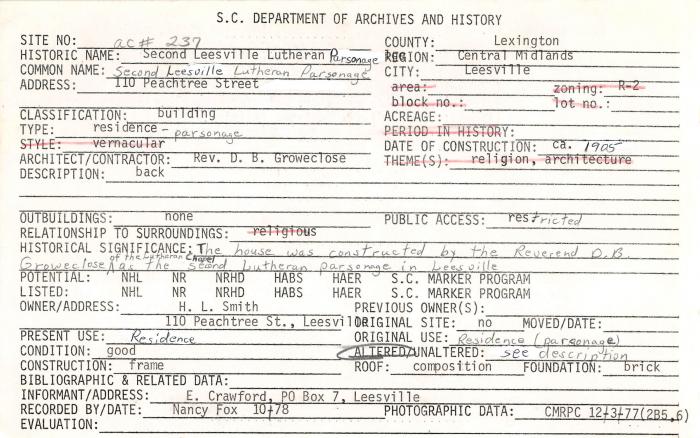 S.C. DEPARTMENT OF ARCHIVES AND HISTORY
SITE NO: ac# 237 COUNTY: Lexington
HISTORIC NAME: Second Leesville Lutheran Parsonage REGION: Central Midlands
COMMON NAME: Second Leesville Lutheran Parsonage CITY: Leesville
ADDRESS: 110 Peachtree Street area: zoning: R-2
block no.: lot no.:
CLASSIFICATION: building ACREAGE:
TYPE: residence - parsonage PERIOD IN HISTORY:
STYLE: vernacular DATE OF CONSTRUCTION: ca. 1905
ARCHITECT/CONTRACTOR: Rev. D. B. Groweclose THEME(S): religion, architecture
DESCRIPTION: back
OUTBUILDINGS: none PUBLIC ACCESS: restricted
RELATIONSHIP TO SURROUNDINGS: religious
HISTORICAL SIGNIFICANCE: The house was constructed by the Reverend D.B.
of the Lutheran Chapel
Groweclose as the second Lutheran parsonage in Leesville
POTENTIAL: NHL NR NRHD HABS HAER S.C. MARKER PROGRAM
LISTED: NHL NR NRHD HABS HAER S.C. MARKER PROGRAM
OWNER/ADDRESS: H. L. Smith PREVIOUS OWNER(S):
110 Peachtree St., Leesville ORIGINAL SITE: no MOVED/DATE:
PRESENT USE: Residence ORIGINAL USE: Residence (parsonage)
CONDITION: good ALTERED/UNALTERED: see description
CONSTRUCTION: frame ROOF: composition FOUNDATION: brick
BIBLIOGRAPHIC & RELATED DATA:
INFORMANT/ADDRESS: E. Crawford, PO Box 7, Leesville
RECORDED BY/DATE: Nancy Fox 10-78 PHOTOGRAPHIC DATA: CMRPC 12-3-77(2B5,6)
EVALUATION: